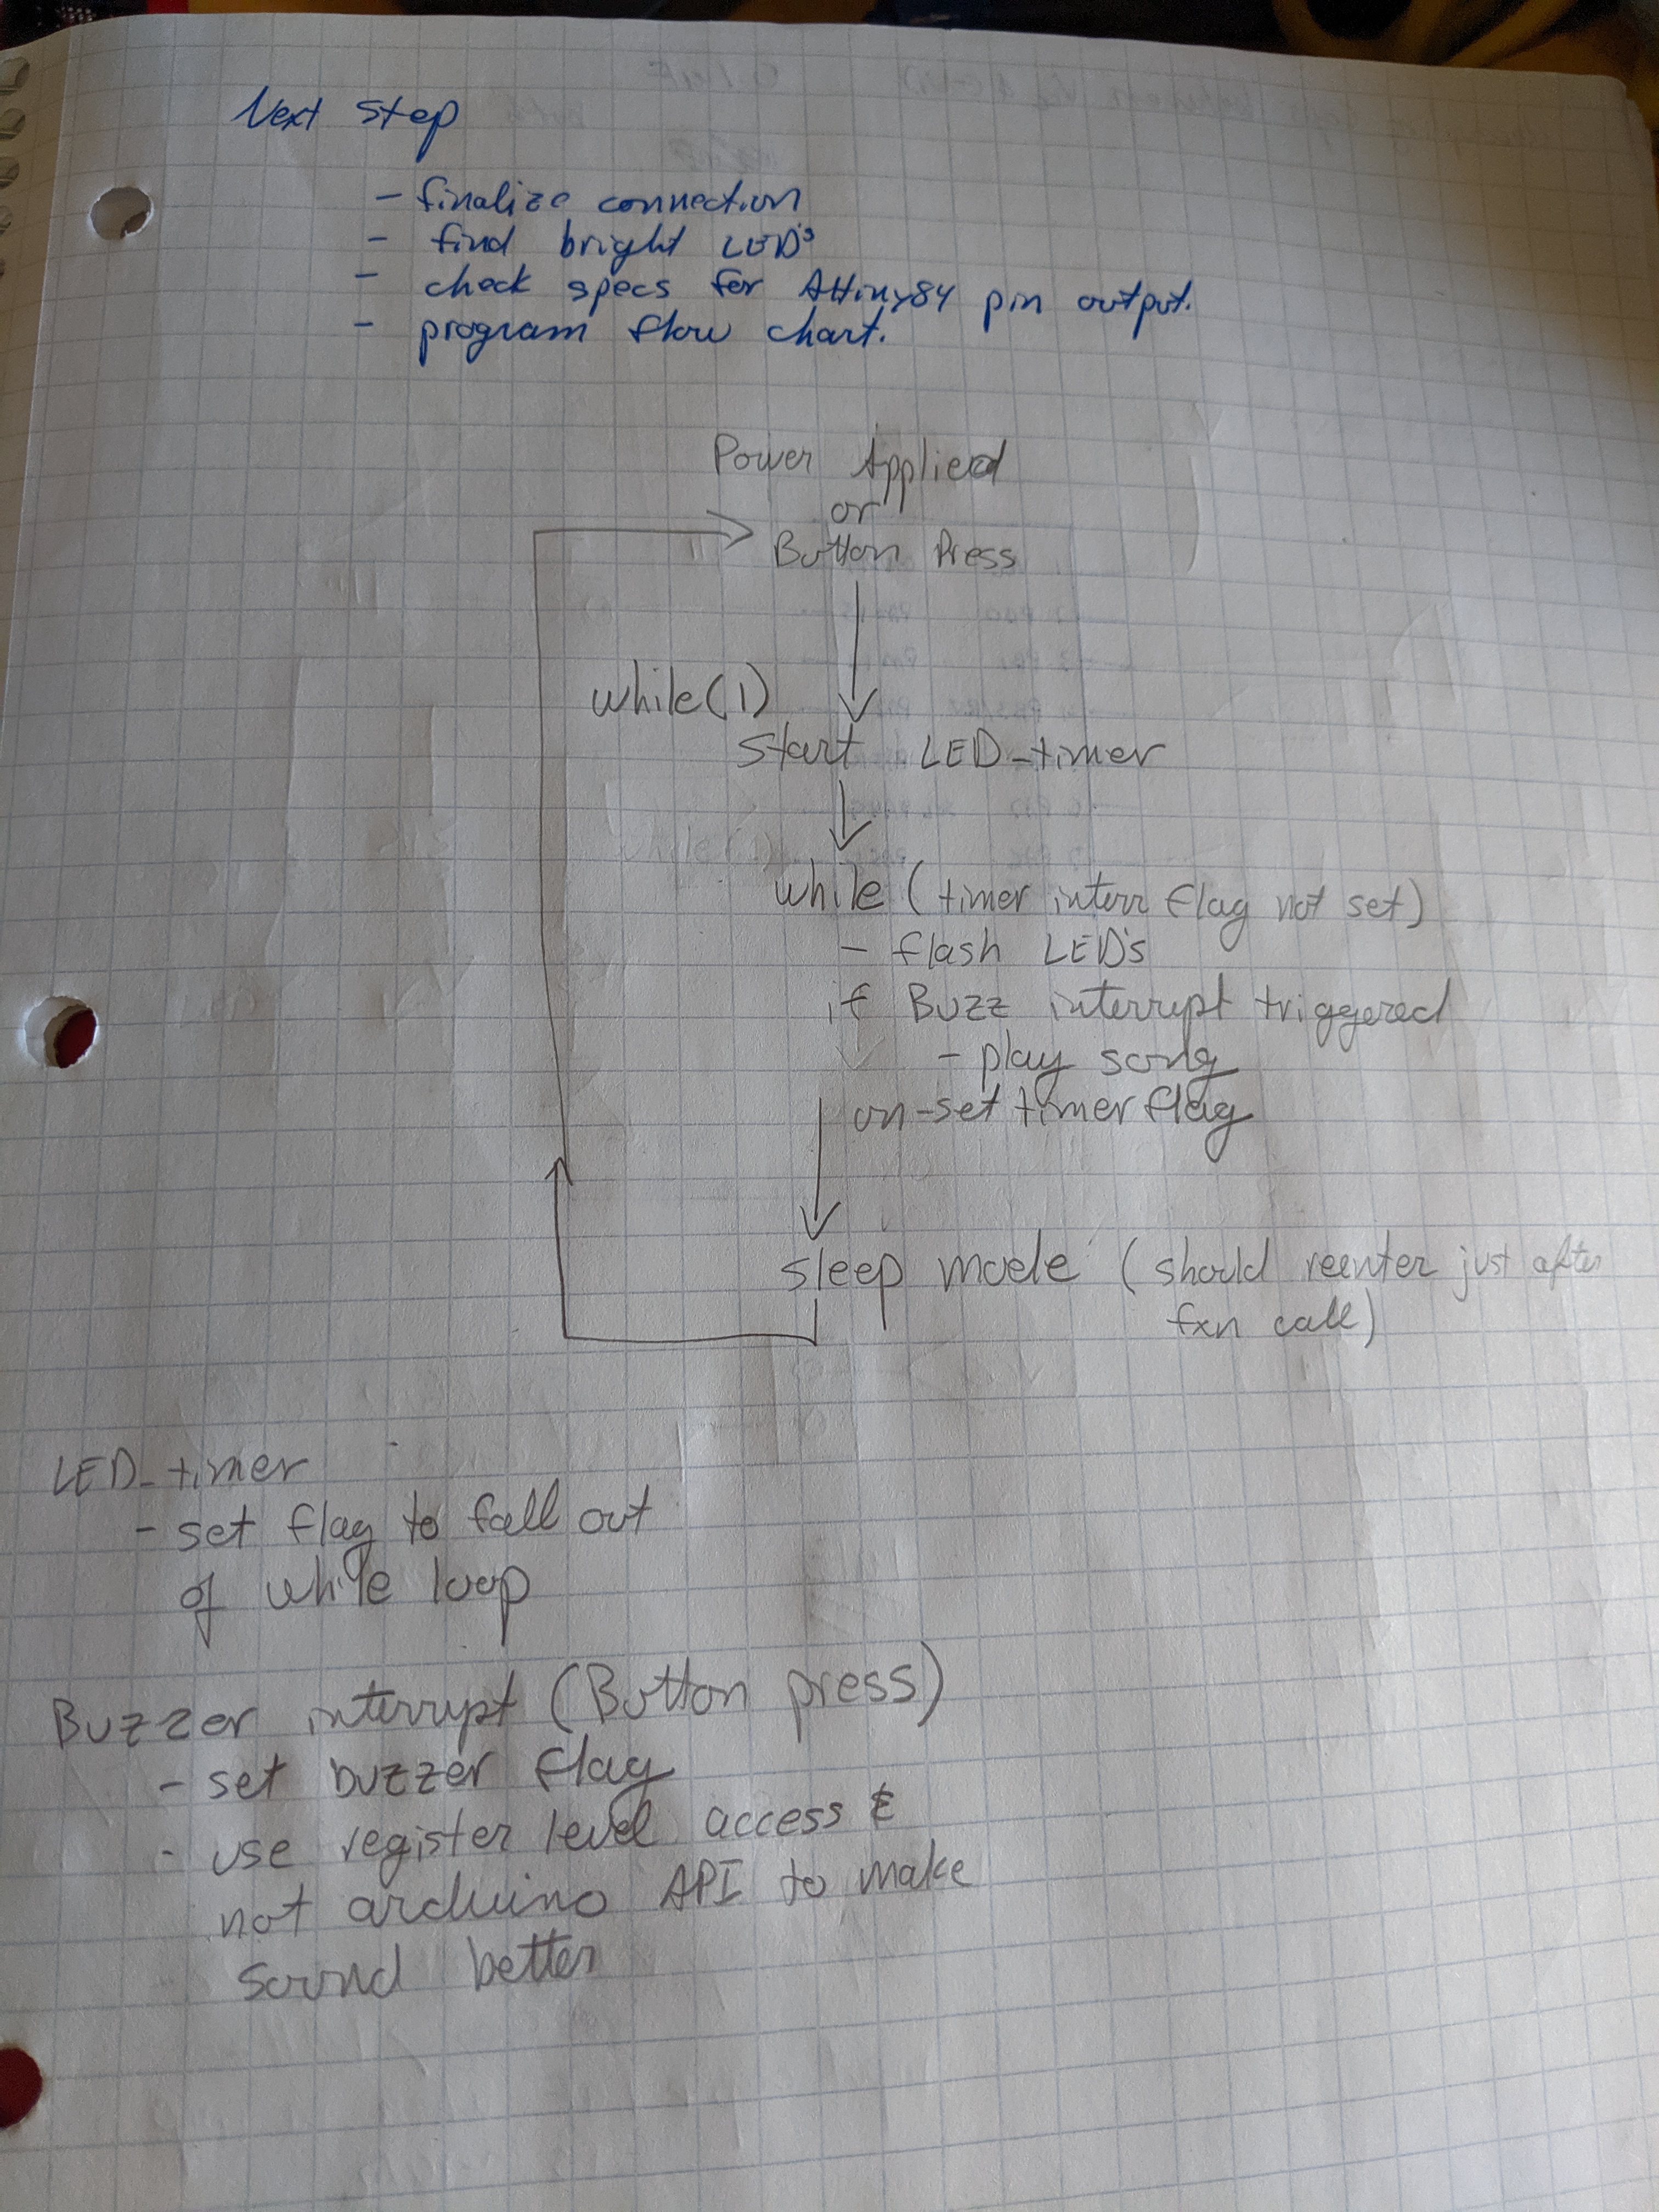 Next Step
- finalize connection
- find bright LED's
- check specs for Attiny84 pin output.
- program flow chart.
Power Applied
or
Button Press
while(1)
Start LED_timer
while (timer interr flag not set)
- flash LED's
if Buzz interrupt triggered
- play song
un-set timer flag
sleep mode (should reenter just after
fxn call)
LED_timer
- set flag to fall out
of while loop
Buzzer interrupt (Button press)
- set buzzer flag
- use register level access &
not arduino API to make
sound better